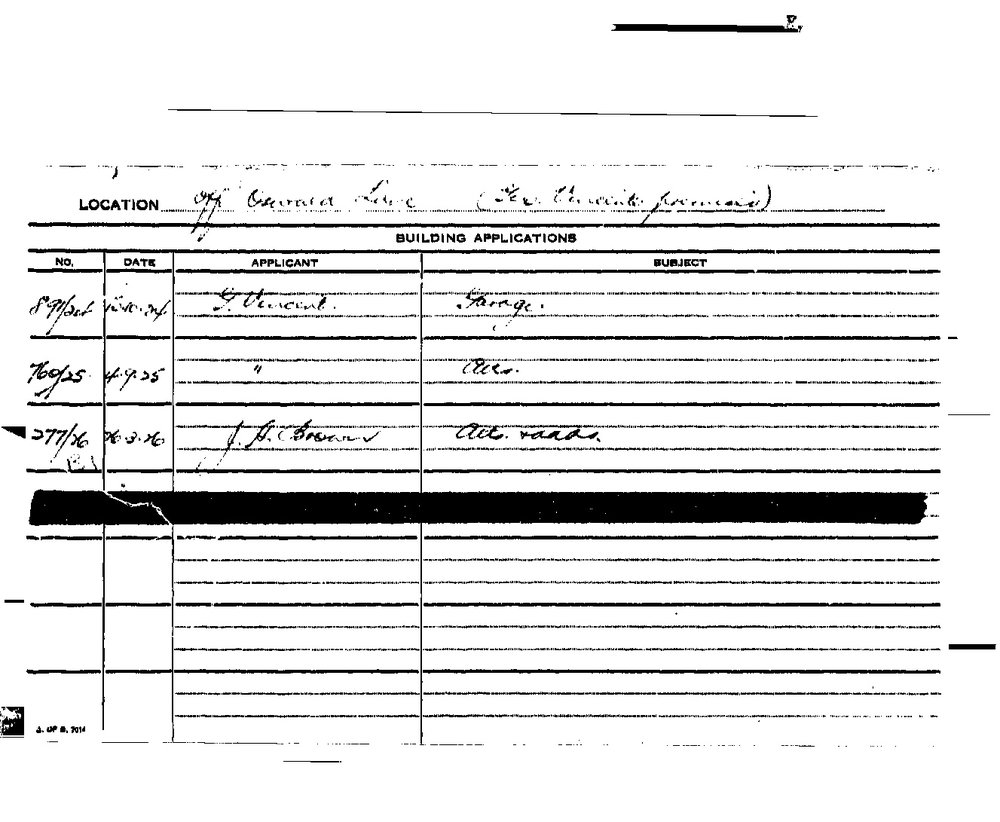 LOCATION off Oswald Lane (Geo. Vincent's premises)
BUILDING APPLICATIONS
NO. DATE APPLICANT SUBJECT
891/24 13.10.24 G. Vincent. Garage.
760/25 4.9.25 " Alts.
277/26 26.3.26 J. A. Brown Alts. & adds.